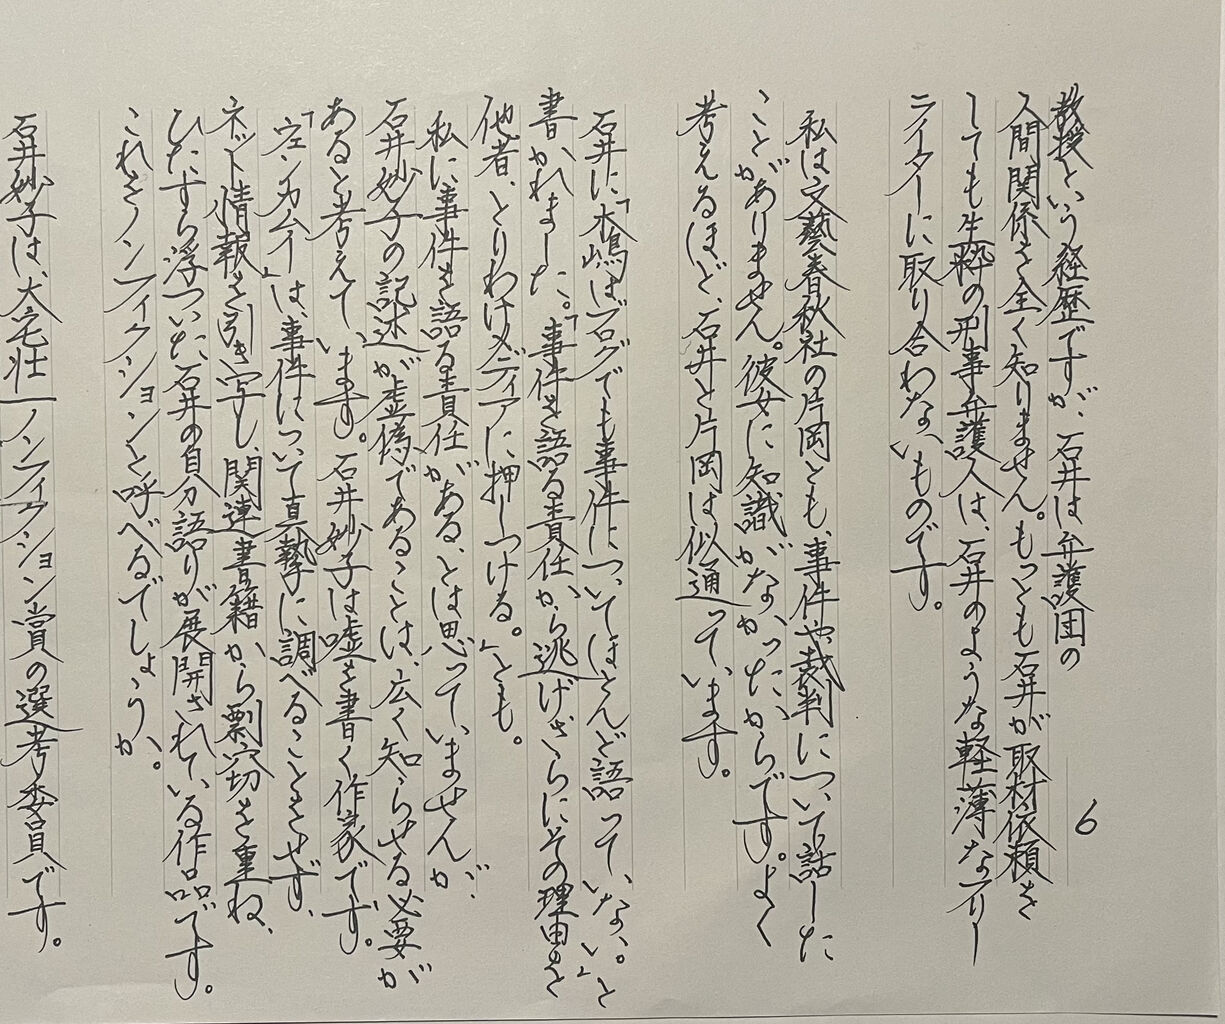 6
教授という経歴ですが、石井は弁護団の
人間関係を全く知りません。もっとも石井が取材依頼を
しても生粋の刑事弁護人は、石井のような軽薄なフリー
ライターに取り合わないものです。
私は文藝春秋社の片岡とも、事件や裁判について話した
ことがありません。彼女に知識がなかったからです。よく
考えるほど、石井と片岡は似通っています。
石井に「木嶋はブログでも事件についてほとんど語っていない。」と
書かれました。「事件を語る責任から逃げさらにその理由を
他者、とりわけメディアに押しつける。」とも。
私に事件を語る責任がある、とは思っていませんが、
石井妙子の記述が虚偽であることは、広く知らせる必要が
あると考えています。石井妙子は嘘を書く作家です。
「ウェンカムイ」は、事件について真摯に調べることもせず、
ネット情報を引き写し、関連書籍から剽窃を重ね、
ひたすら浮ついた石井の自分語りが展開されている作品です。
これをノンフィクションと呼べるでしょうか。
石井妙子は、大宅壮一ノンフィクション賞の選考委員です。